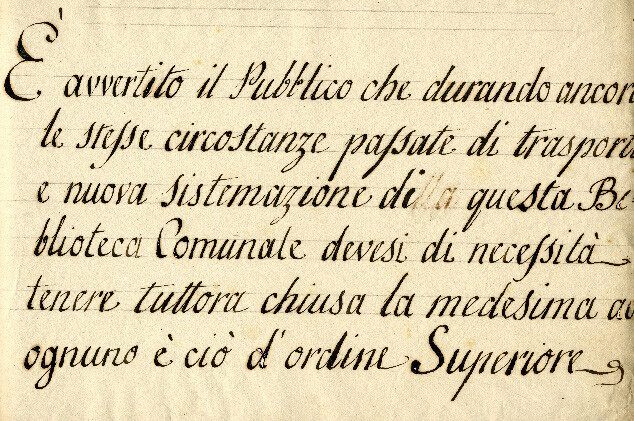 È avvertito il Pubblico che durando ancor
le stesse circostanze passate di trasport
e nuova sistemazione di questa Bi-
blioteca Comunale devesi di necessità
tenere tuttora chiusa la medesima ad
ognuno è ciò d'ordine Superiore